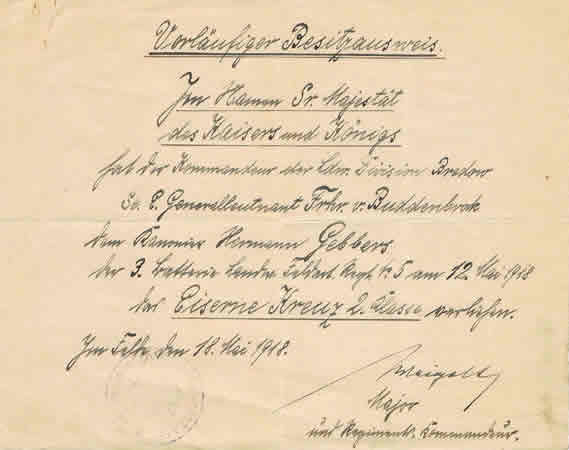 Vorläufiger Besitzausweis.
Im Namen Sr. Majestät
des Kaisers und Königs
hat der Kommandeur der Ldw. Division Bredow
Se. E. Generalleutnant Frhr. v. Buddenbrok
dem Kanonier Hermann Gebbers
der 3. Batterie Landw. Feldart. Regt. № 5 am 12. Mai 1918
das Eiserne Kreuz 2. Classe verliehen.
Im Felde, den 18. Mai 1918.
Major
und Regiments Kommandeur.